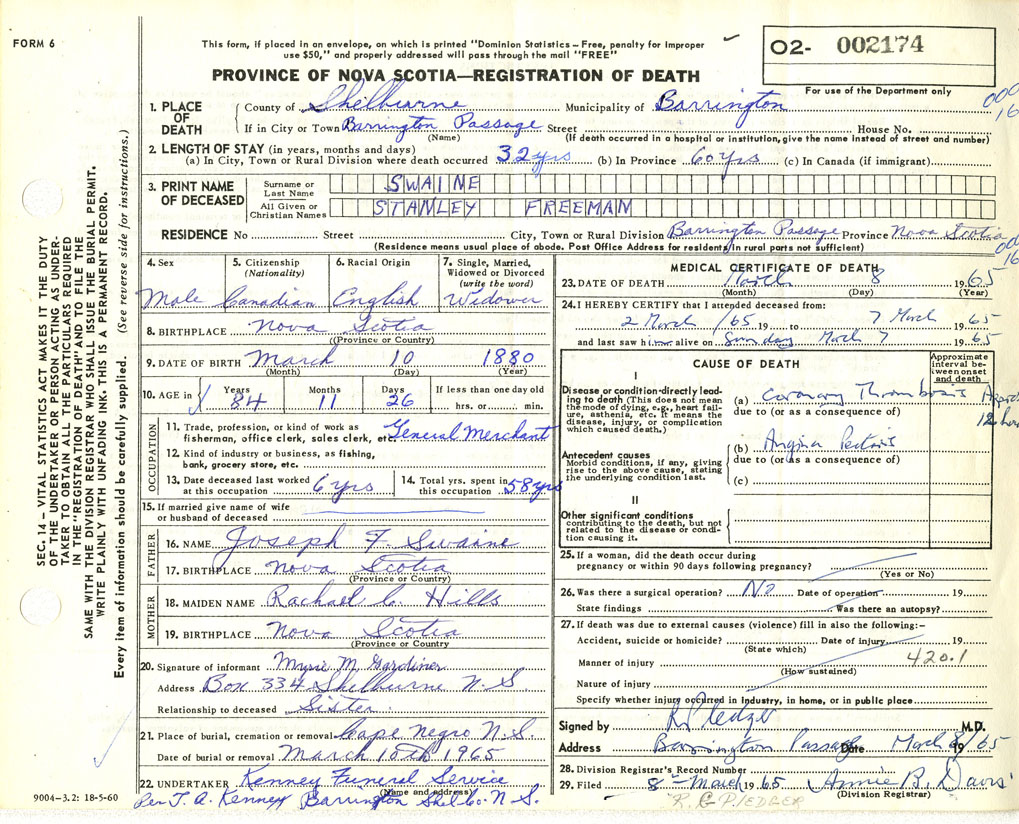 FORM 6
This form, if placed in an envelope, on which is printed "Dominion Statistics – Free, penalty for improper
use $50," and properly addressed will pass through the mail "FREE"
O2- 002174
For use of the Department only
PROVINCE OF NOVA SCOTIA—REGISTRATION OF DEATH
1. PLACE OF DEATH { County of Shelburne Municipality of Barrington
If in City or Town Barrington Passage Street House No.
(Name) (If death occurred in a hospital or institution, give the name instead of street and number)
2. LENGTH OF STAY (in years, months and days)
(a) In City, Town or Rural Division where death occurred 32 yrs (b) In Province 60 yrs (c) In Canada (if immigrant)
3. PRINT NAME OF DECEASED
Surname or Last Name SWAINE
All Given or Christian Names STANLEY FREEMAN
RESIDENCE No Street City, Town or Rural Division Barrington Passage Province Nova Scotia
(Residence means usual place of abode. Post Office Address for residents in rural parts not sufficient)
SEC. 14 – VITAL STATISTICS ACT MAKES IT THE DUTY
OF THE UNDERTAKER OR PERSON ACTING AS UNDER-
TAKER TO OBTAIN ALL THE PARTICULARS REQUIRED
IN THE "REGISTRATION OF DEATH" AND TO FILE THE
SAME WITH THE DIVISION REGISTRAR WHO SHALL ISSUE THE BURIAL PERMIT.
WRITE PLAINLY WITH UNFADING INK. THIS IS A PERMANENT RECORD.
Every item of information should be carefully supplied. (See reverse side for instructions.)
4. Sex Male
5. Citizenship (Nationality) Canadian
6. Racial Origin English
7. Single, Married, Widowed or Divorced (write the word) Widower
8. BIRTHPLACE Nova Scotia
(Province or Country)
9. DATE OF BIRTH March 10 1880
(Month) (Day) (Year)
10. AGE in { Years 84 Months 11 Days 26 If less than one day old hrs. or min.
OCCUPATION
11. Trade, profession, or kind of work as
fisherman, office clerk, sales clerk, etc. General Merchant
12. Kind of industry or business, as fishing,
bank, grocery store, etc.
13. Date deceased last worked at this occupation 6 yrs
14. Total yrs. spent in this occupation 58 yrs
15. If married give name of wife
or husband of deceased
FATHER
16. NAME Joseph F Swaine
17. BIRTHPLACE Nova Scotia
(Province or Country)
MOTHER
18. MAIDEN NAME Rachael C. Hills
19. BIRTHPLACE Nova Scotia
(Province or Country)
20. Signature of informant Myrie M. Gardiner
Address Box 334 Shelburne N.S.
Relationship to deceased Sister
21. Place of burial, cremation or removal Cape Negro N.S.
Date of burial or removal March 10th 1965
22. UNDERTAKER Kenney Funeral Service
(Name and address)
Per T. A. Kenney Barrington Shel. Co. N.S.
9004-3.2: 18-5-60
MEDICAL CERTIFICATE OF DEATH
23. DATE OF DEATH March 8 1965
(Month) (Day) (Year)
24. I HEREBY CERTIFY that I attended deceased from:
2 March /65 19 to 7 March 1965
and last saw him alive on Sunday March 7 1965
CAUSE OF DEATH
Approximate interval between onset and death
I
Disease or condition directly leading to death (This does not mean the mode of dying, e.g., heart failure, asthenia, etc. It means the disease, injury, or complication which caused death.)
(a) Coronary Thrombosis
due to (or as a consequence of)
Antecedent causes
Morbid conditions, if any, giving rise to the above cause, stating the underlying condition last.
(b) Angina Pectoris
due to (or as a consequence of)
(c)
II
Other significant conditions
contributing to the death, but not related to the disease or condition causing it.
25. If a woman, did the death occur during
pregnancy or within 90 days following pregnancy?
(Yes or No)
26. Was there a surgical operation? No Date of operation 19
State findings Was there an autopsy?
27. If death was due to external causes (violence) fill in also the following:–
Accident, suicide or homicide? Date of injury 19
(State which)
Manner of injury 420.1
(How sustained)
Nature of injury
Specify whether injury occurred in industry, in home, or in public place
Signed by R Pledger M.D.
Address Barrington Passage Date March 8/65 19
28. Division Registrar's Record Number
29. Filed 8th March 1965 Annie B. Davis
(Division Registrar)
R. G. PLEDGER